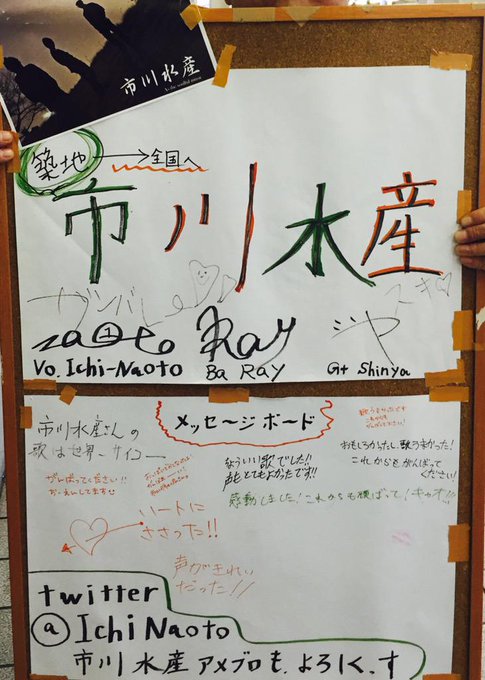 市川水産
築地→全国へ
市川水産
ガンバレ
スキ
Vo. Ichi-Naoto
Ray
Ba Ray
Gt Shinya
メッセージボード
市川水産さんの
歌は世界一サイコー
がんばってください!!
おーえんしてます
ハートに
ささった!!
声がきれい
だった!!
なういい歌でした!!
とてもよかったです!!
おもしろかったし、歌うまかった!
これからもがんばって
ください!
感動しました!これからも頑ばって!キャオ!!!
twitter
@IchiNaoto
市川水産アメブロも、よろしく、す